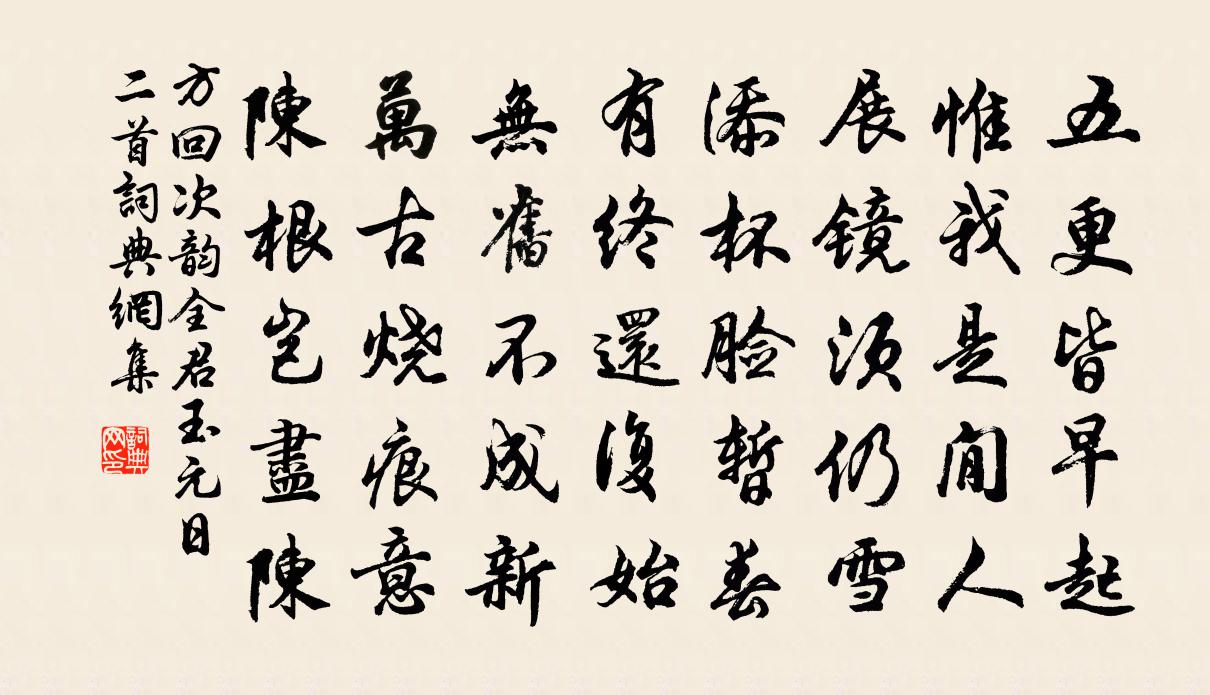 五更皆早起
惟我是閒人
展镜须仍雪
添杯脸暂春
有终還復始
無舊不成新
萬古烧痕意
陳根岂盡陳
方回次韵全君玉元日
二首詞典網集
詞典
网印